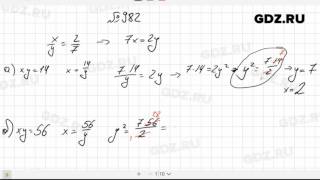 №982
GDZ.RU
x/y = 2/7 → 7x = 2y
а) xy = 14 x = 14/y 7·14/y = 2y → 7·14 = 2y² → y² = 7·14/2 → y = 7
x = 2
б) xy = 56 x = 56/y y² = 7·56/2 =
1/10